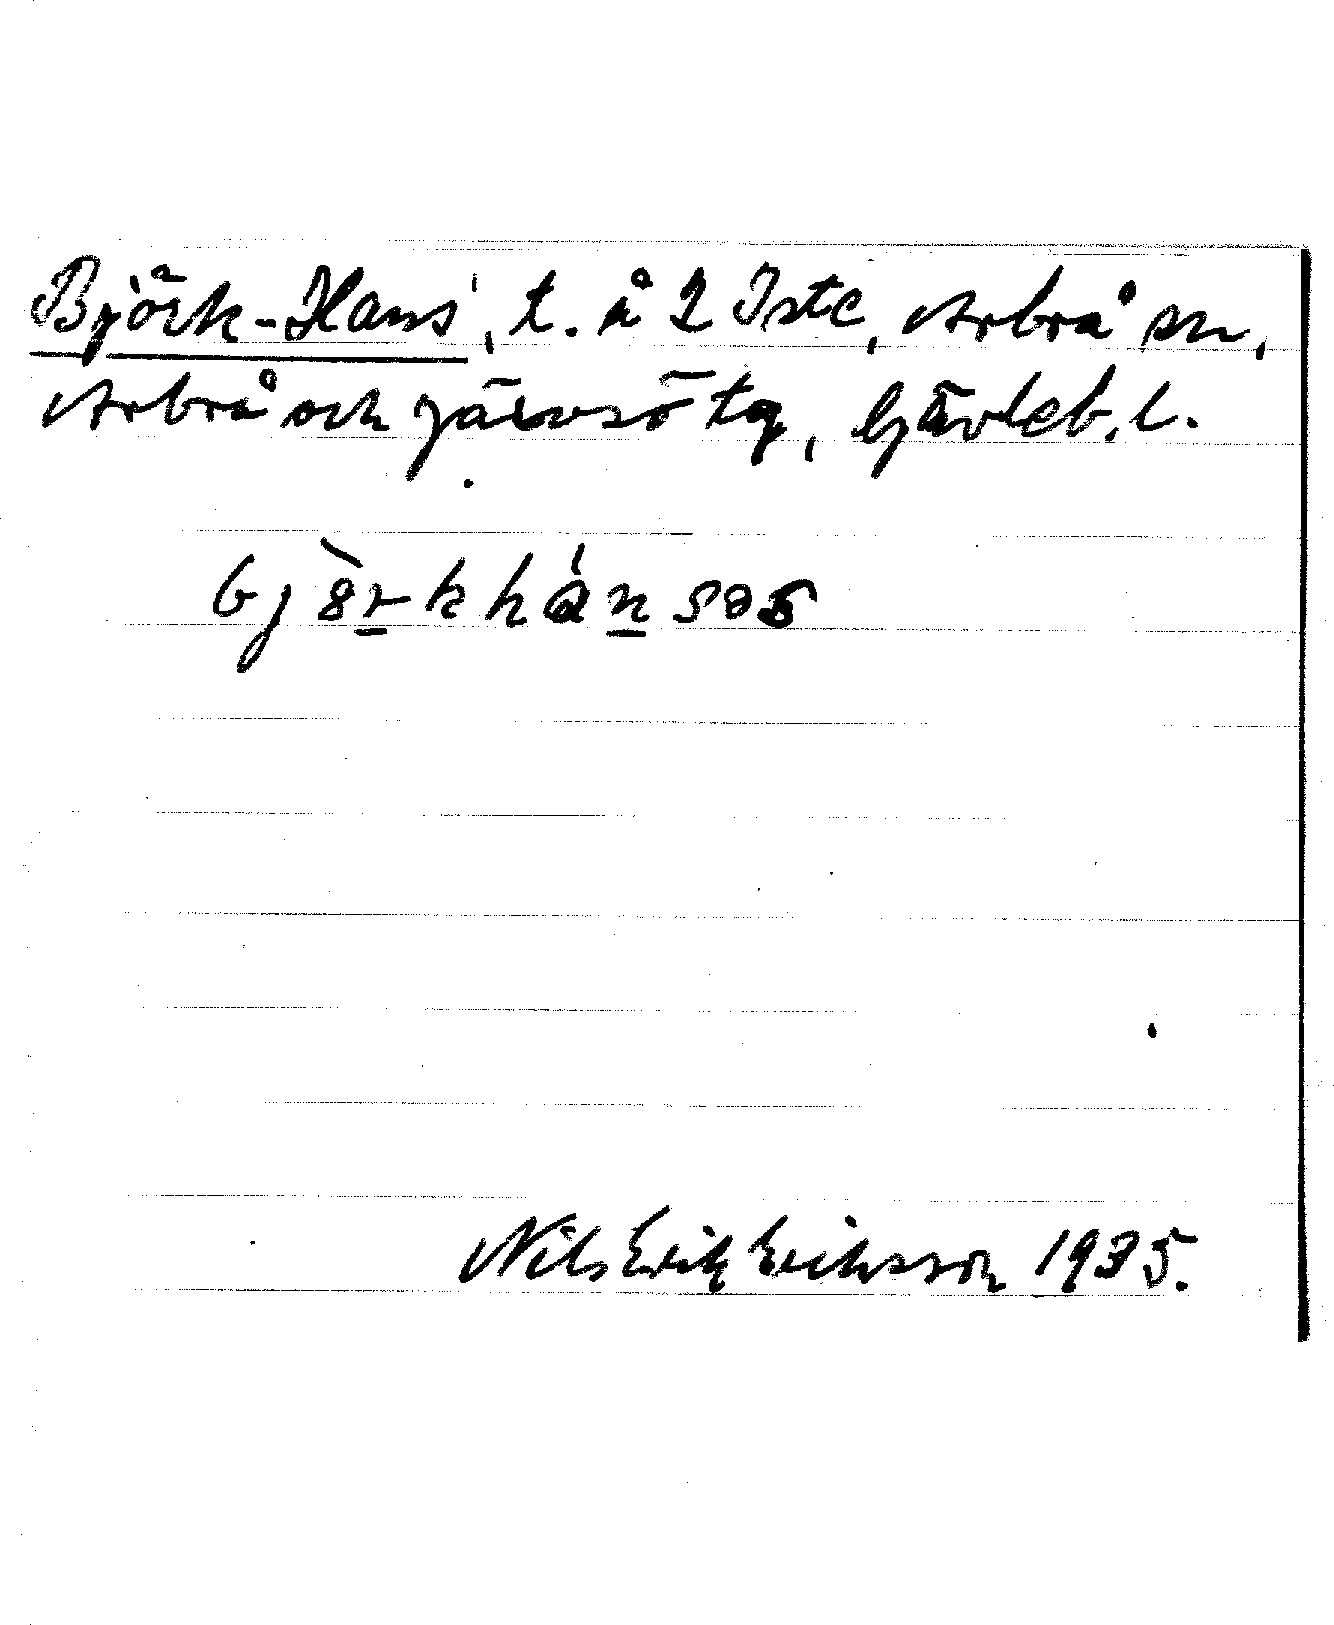 Björk-Hans', t. å 2 Iste, Arbrå sn,
Arbrå och Järvsö tg, Gävleb. l.
bjòrkhánsas
Nils Erik Eriksson 1935.